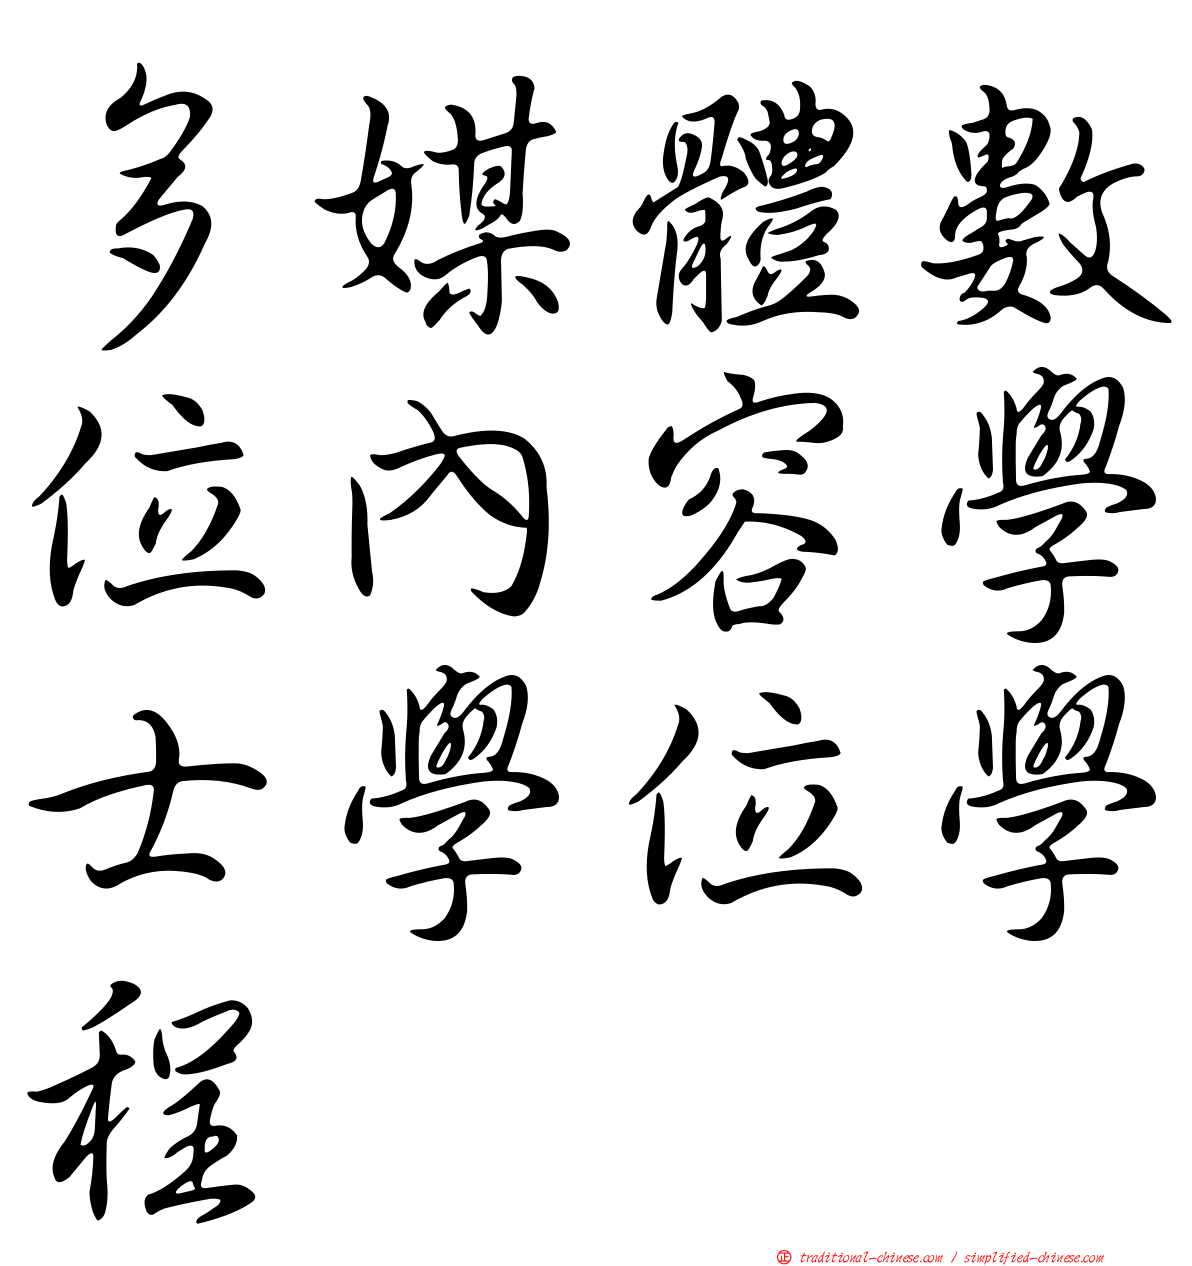 多媒體數
位內容學
士學位學
程
㊣ traditional-chinese.com / simplified-chinese.com